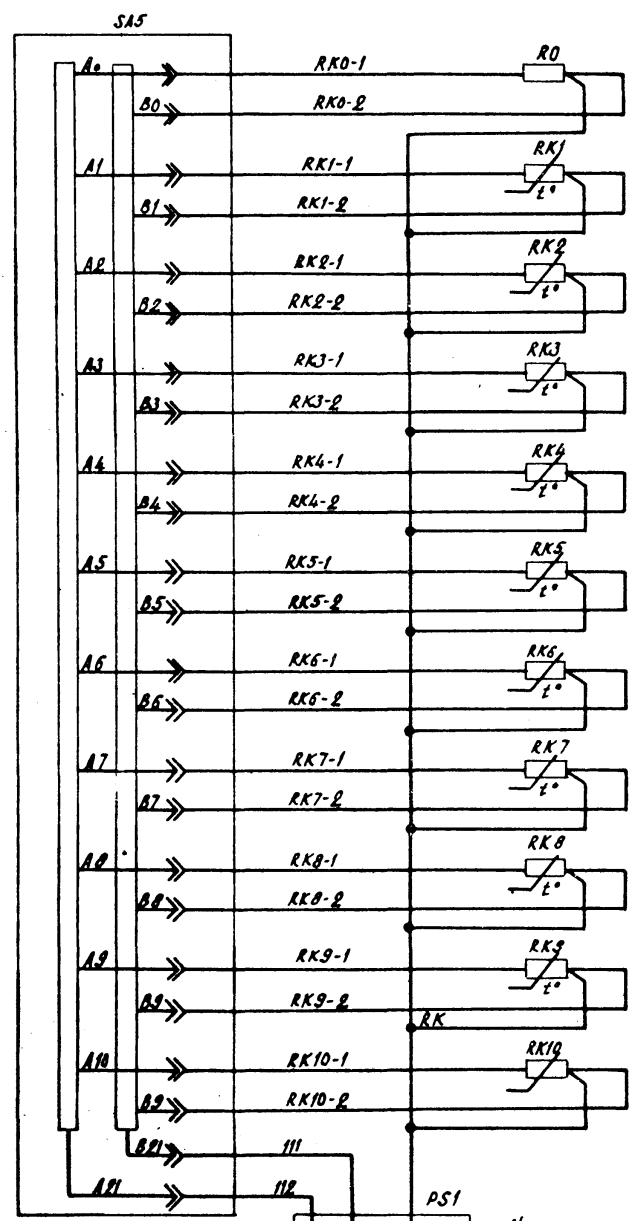 SA5
A0 RK0-1 R0
B0 RK0-2
A1 RK1-1 RK1
t°
B1 RK1-2
A2 RK2-1 RK2
t°
B2 RK2-2
A3 RK3-1 RK3
t°
B3 RK3-2
A4 RK4-1 RK4
t°
B4 RK4-2
A5 RK5-1 RK5
t°
B5 RK5-2
A6 RK6-1 RK6
t°
B6 RK6-2
A7 RK7-1 RK7
t°
B7 RK7-2
A8 RK8-1 RK8
t°
B8 RK8-2
A9 RK9-1 RK9
t°
B9 RK9-2 RK
A10 RK10-1 RK10
B9 RK10-2
B21 111
A21 112
PS1